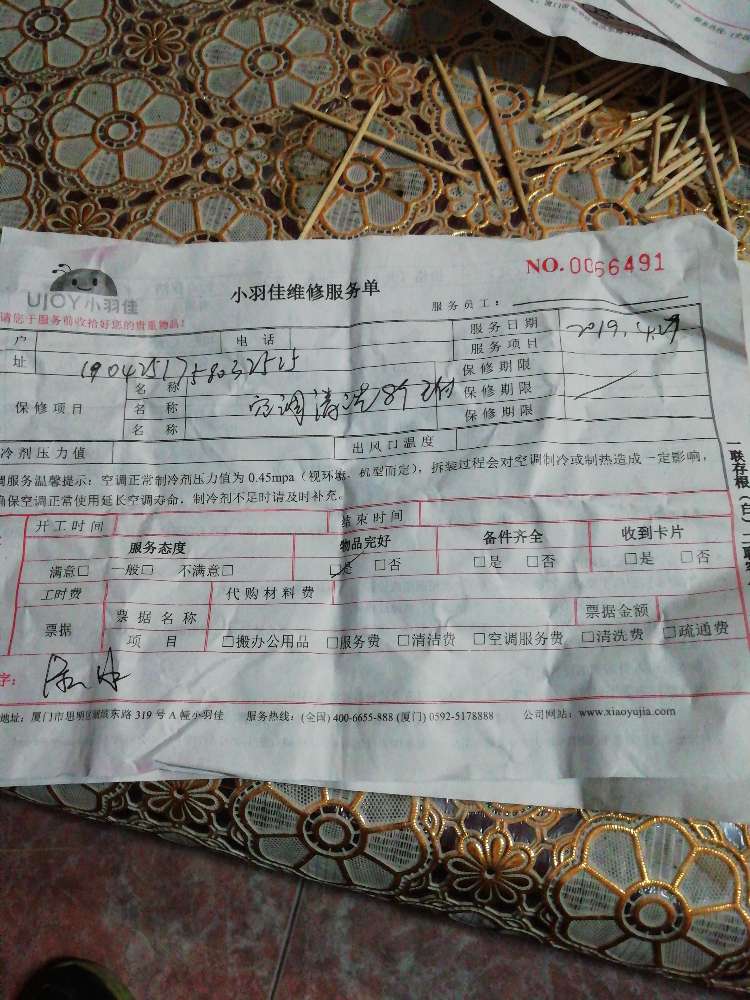 NO.0066491
UJOY小羽佳
小羽佳维修服务单
请您于服务前收拾好您的贵重物品!
服务员工:
户 电话 服务日期 2019.4.29
址 1904251758032525 服务项目
保修项目 名称 保修期限
名称 空调清洗8个 保修期限
名称 保修期限
冷剂压力值 出风口温度
调服务温馨提示:空调正常制冷剂压力值为 0.45mpa(视环境、机型而定),拆装过程会对空调制冷或制热造成一定影响,
确保空调正常使用延长空调寿命,制冷剂不足时请及时补充。
开工时间 结束时间
服务态度 物品完好 备件齐全 收到卡片
满意□ 一般□ 不满意□ □是 □否 □是 □否 □是 □否
工时费 代购材料费
票据 票据名称 票据金额
项目 □搬办公用品 □服务费 □清洁费 □空调服务费 □清洗费 □疏通费
字:
地址:厦门市思明区湖滨东路 319 号 A 幢小羽佳 服务热线:(全国) 400-6655-888 (厦门) 0592-5178888 公司网站:www.xiaoyujia.com
一联存根(白)二联客